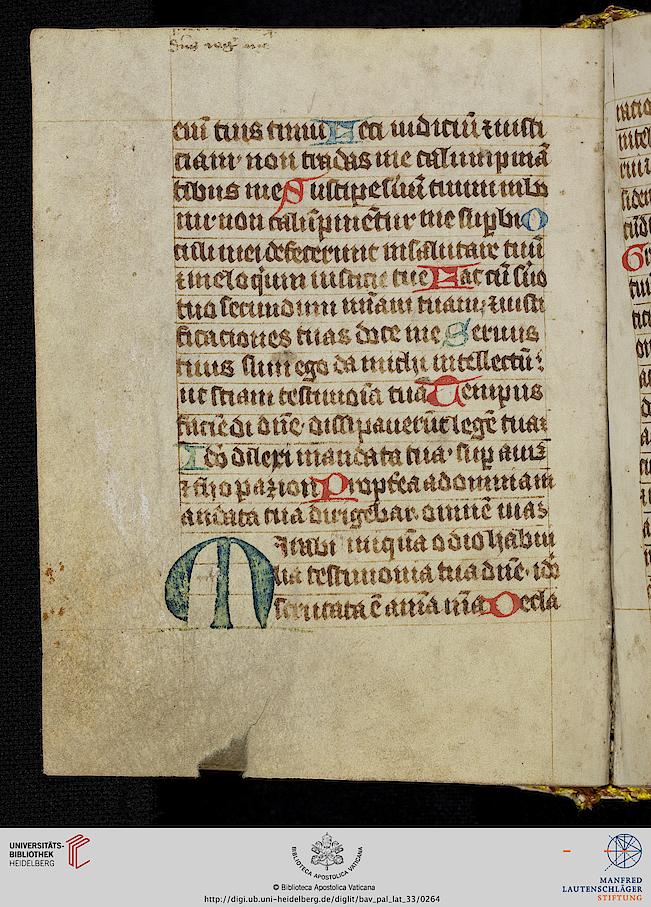 enī tuis timui Feci iudiciū ⁊ iusti
ciam· non tradas me calumpniā
tibus me Suscipe suū tuum in bo
nū· non calūpnietur me supbi O
culi mei defecerunt in salutare tuū
⁊ in eloquium iusticie tue Fac cū suo
tuo secundum miām tuam, ⁊ iusti
ficaciones tuas doce me Seruus
tuus sum ego da michi intellectū:
ut sciam testimoīa tua Tempus
faciē di dnē· dissipauerūt legē tuā
Ido dilexi mandata tua· sup aurū
⁊ thopazion Propterea ad omnia m
andata tua dirigebar· omnē uias
iniqua odio habui
Mirabilia testimonia tua dnē· ido
scrutata ē aīa mā Decla
UNIVERSITÄTS-
BIBLIOTHEK
HEIDELBERG
BIBLIOTECA APOSTOLICA VATICANA
© Biblioteca Apostolica Vaticana
http://digi.ub.uni-heidelberg.de/diglit/bav_pal_lat_33/0264
MANFRED
LAUTENSCHLÄGER
STIFTUNG